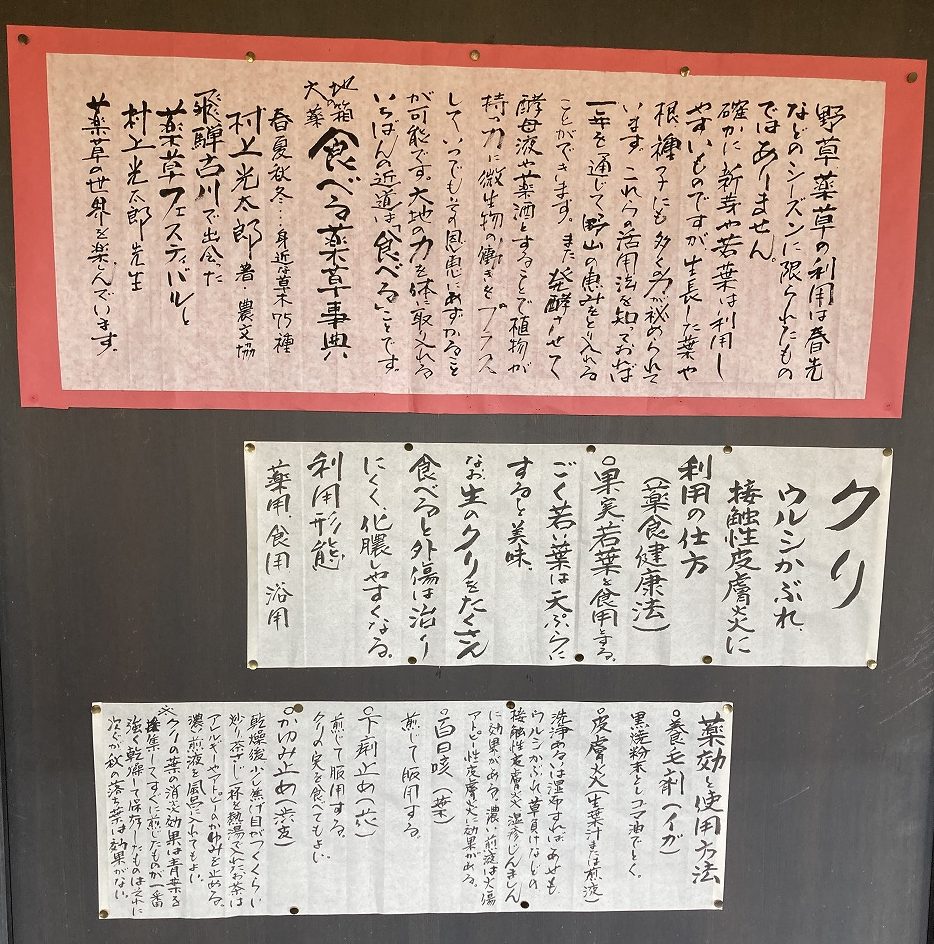 野草薬草の利用は春先
などのシーズンに限られたもの
ではありません。
確かに新芽や若葉は利用し
やすいものですが生長した葉や
根、種子にも多くの力が秘められて
います。これらの活用法を知っておれば
一年を通じて野山の恵みをとり入れる
ことができます。また発酵させて
酵母液や薬酒とすることで植物が
持つ力に微生物の働きをプラス
していつでもその恩恵にあずかること
が可能です。大地の力を体に取り入れる
いちばんの近道は「食べる」ことです。
大地の薬箱 食べる薬草事典
春夏秋冬…身近な草木75種
村上光太郎 著・農文協
飛騨古川で出会った
薬草フェスティバルと
村上光太郎先生
薬草の世界を楽しんでいます。
クリ
ウルシかぶれ、
接触性皮膚炎に
利用の仕方
(薬食健康法)
○果実若葉を食用とする。
ごく若い葉は天ぷらに
すると美味。
なお、生のクリをたくさん
食べると外傷は治り
にくく、化膿しやすくなる。
利用形態
薬用、食用 浴用
薬効と使用方法
○養毛剤(イガ)
黒焼粉末をゴマ油でとく。
○皮膚炎(生葉汁または煎液)
洗浄あるいは湿布すれば、あせも
ウルシかぶれ、草負けなどの
接触性皮膚炎、湿疹じんましん
に効果がある。濃い煎液は火傷
アトピー性皮膚炎に効果がある。
○百日咳(葉)
煎じて服用する。
○下痢止め(花)
煎じて服用する。
クリの実を食べてもよい
○かゆみ止め(渋皮)
乾燥後少し焦げ目がつくくらい
炒り茶さじ一杯を熱湯でいれたお茶は
アレルギーやアトピーのかゆみを止める。
濃い煎液を風呂に入れてもよい。
※クリの葉の消炎効果は青葉を
採集してすぐに煎じたものが一番
強く乾燥して保存したものはそれに
次ぐが秋の落ち葉は効果がない。